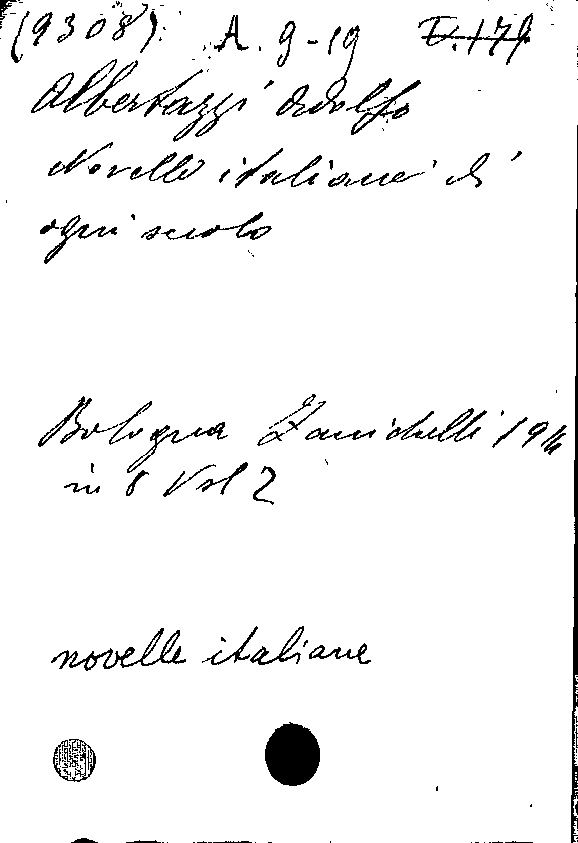 (9308) A. 9-19
Albertazzi Adolfo
Novelle italiane di
ogni secolo
Bologna Zanichelli
in 8 Vol 2
novelle italiane